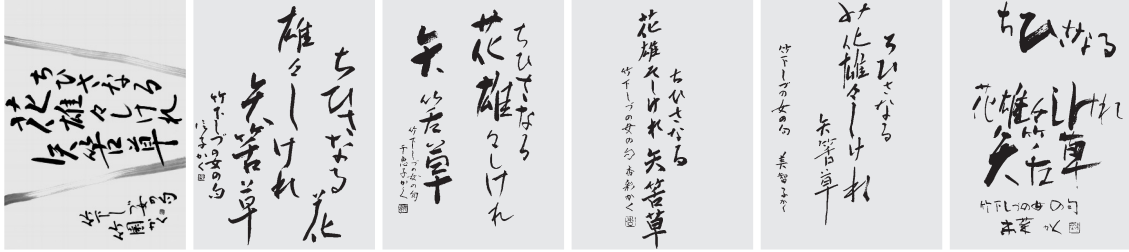 ちひさなる
花雄々しけれ
矢筈草
ちひさなる花
雄々しけれ
矢筈草
竹下しづの女の句
かく
ちひさなる
花雄々しけれ
矢筈草
竹下しづの女の句
千恵子かく
ちひさなる
花雄々しけれ矢筈草
竹下しづの女の句 杏彩かく
ちひさなる
花雄々しけれ
矢筈草
竹下しづの女の句 美智子かく
ちひさなる
花雄々しけれ
矢筈草
竹下しづの女の句
かく